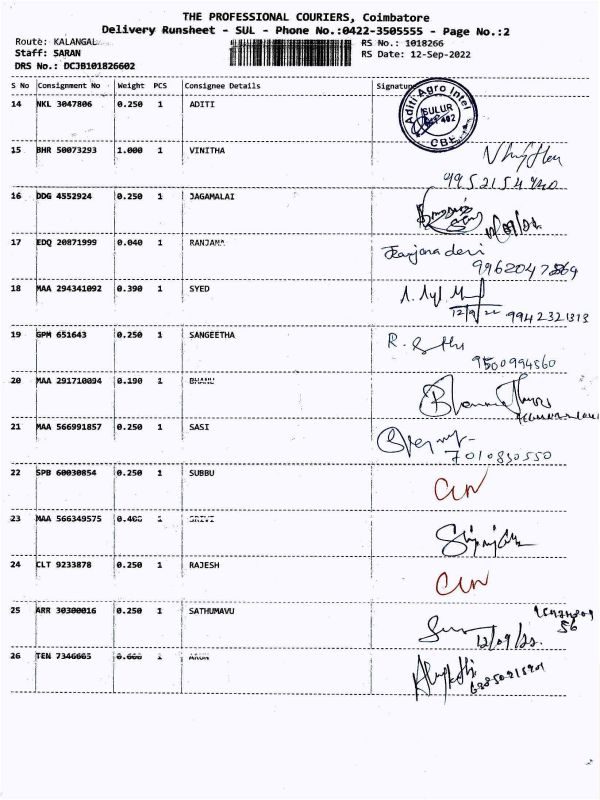 THE PROFESSIONAL COURIERS, Coimbatore
Delivery Runsheet - SUL - Phone No.:0422-3505555 - Page No.:2
Route: KALANGAL
RS No.: 1018266
Staff: SARAN
RS Date: 12-Sep-2022
DRS No.: DCJB101826602
S No Consignment No Weight PCS Consignee Details Signature
14 NKL 3047806 0.250 1 ADITI
Aditi Agro Intel SULUR CBE
15 BHR 50073293 1.000 1 VINITHA
9952154740
16 DDG 4552924 0.250 1 JAGAMALAI
17 EDQ 20871999 0.040 1 RANJANA
Ranjana devi
18 MAA 294341092 0.390 1 SYED
12/9/22 9942321313
19 GPM 651643 0.250 1 SANGEETHA
9500994560
20 MAA 291710094 0.190 1 BHANU
21 MAA 566991857 0.250 1 SASI
7010830550
22 SPB 60030854 0.250 1 SUBBU
23 MAA 566349575 1
24 CLT 9233878 0.250 1 RAJESH
25 ARR 30300016 0.250 1 SATHUMAVU
12/09/22
26 TEN 7346665 1 ARUN